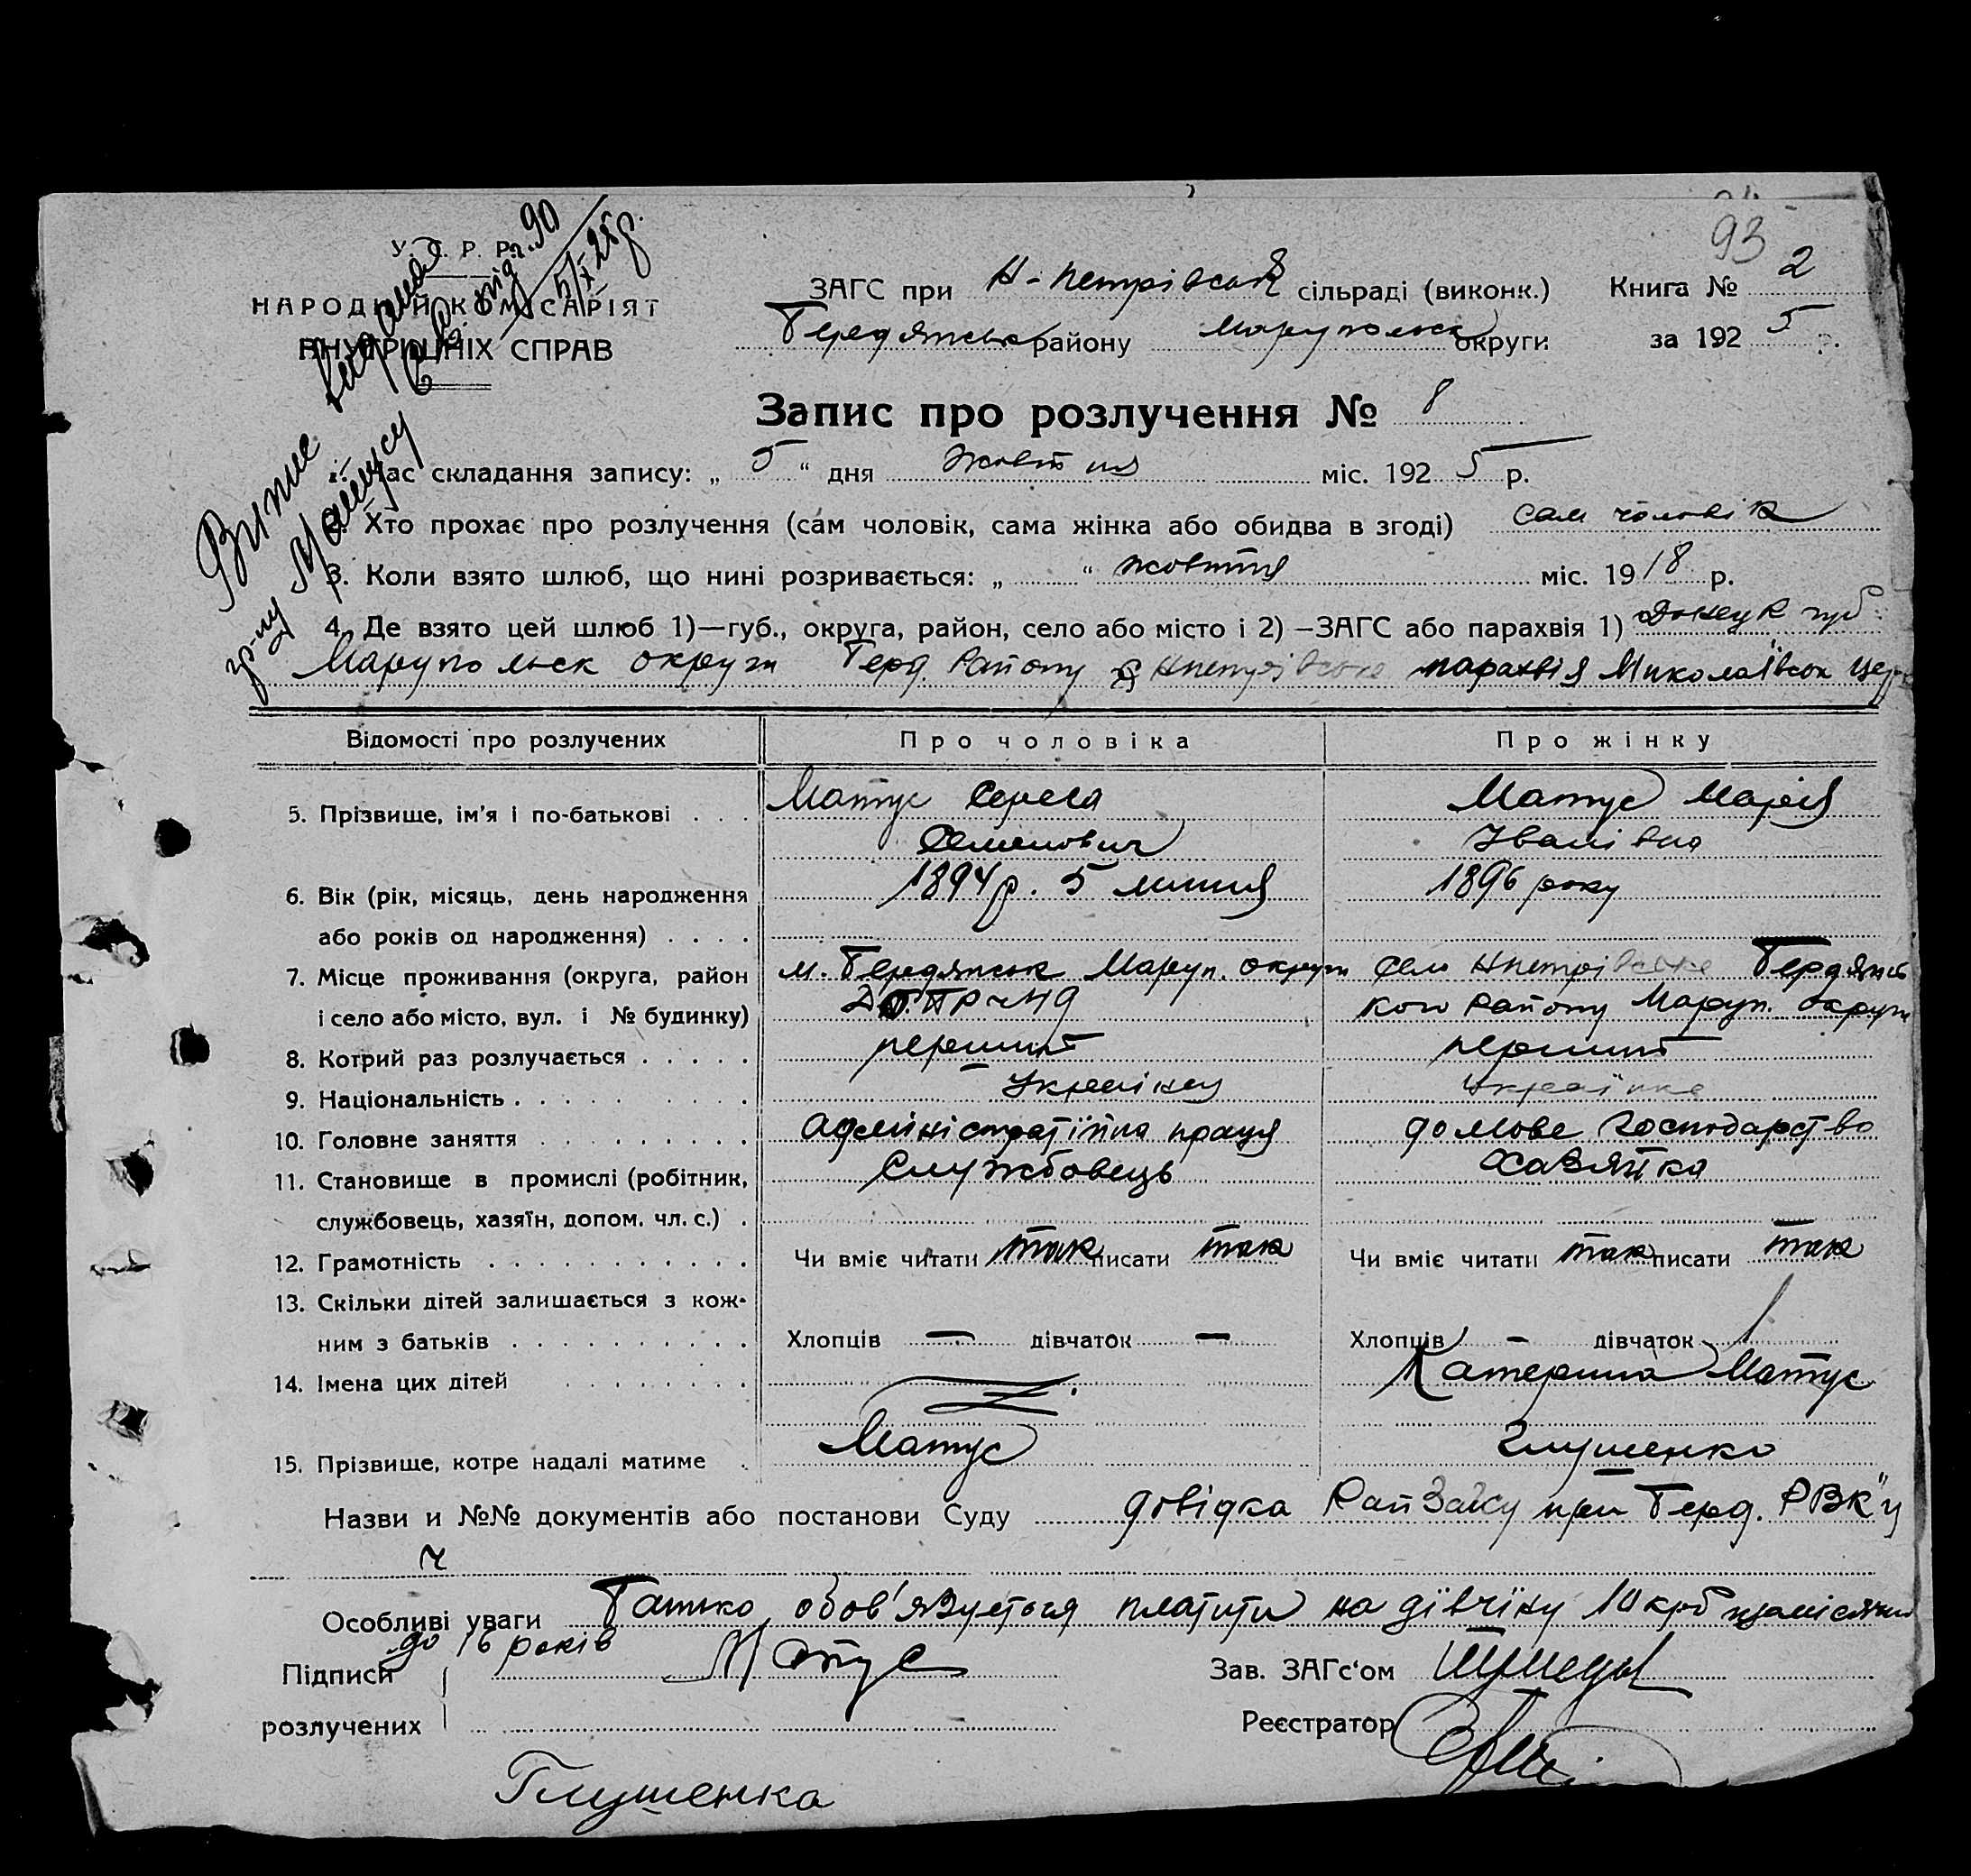 93
У. С. Р. Р.
НАРОДНИЙ КОМІСАРІЯТ
ВНУТРІШНІХ СПРАВ
Випис
гр-ну Матусу
видано
під № 90
5/X 25 р.
ЗАГС при Н-петрівській сільраді (виконк.) Книга № 2
Бердянськ району Марупольск округи за 1925 р.
Запис про розлучення № 8
1. Час складання запису: „ 5 “ дня жовтня міс. 1925 р.
2. Хто прохає про розлучення (сам чоловік, сама жінка або обидва в згоді) сам чоловік
3. Коли взято шлюб, що нині розривається: „ “ жовтня міс. 1918 р.
4. Де взято цей шлюб 1)—губ., округа, район, село або місто і 2) —ЗАГС або парахвія 1) Донецк губ.
Маруполеск округи Берд. Району с. Нпетрівське парахвія Миколаївсок цер
Відомості про розлучених Про чоловіка Про жінку
5. Прізвище, ім'я і по-батькові . . . Матус Серега Матус Марія
Семенович Іванівна
6. Вік (рік, місяць, день народження 1894 р. 5 липня 1896 року
або років од народження) . . . .
7. Місце проживання (округа, район м. Бердянськ Маруп. округи село Нпетрівське Бердянсь
і село або місто, вул. і № будинку) кого Району Маруп. округи
8. Котрий раз розлучається . . . . . перший перший
9. Національність . . . . . . . . . Українець Українка
10. Головне заняття . . . . . . . . . адміністратівна праця домове господарство
11. Становище в промислі (робітник, Службовець Хазяйка
службовець, хазяїн, допом. чл. с.) .
12. Грамотність . . . . . . . . . . . Чи вміє читати так писати так Чи вміє читати так писати так
13. Скільки дітей залишається з кож-
ним з батьків . . . . . . . . . . Хлопців — дівчаток — Хлопців — дівчаток 1
14. Імена цих дітей . . . . . . . . Катерина Матус
15. Прізвище, котре надалі матиме . Матус Глушенко
Назви и №№ документів або постанови Суду довідка РайЗагсу при Берд. РВК"у
ч
Особливі уваги Батько обов'язується платити на дівчіну 10 крб щомісячно
до 16 років
Підписи Матус Зав. ЗАГс‘ом
розлучених Реєстратор
Глушенка